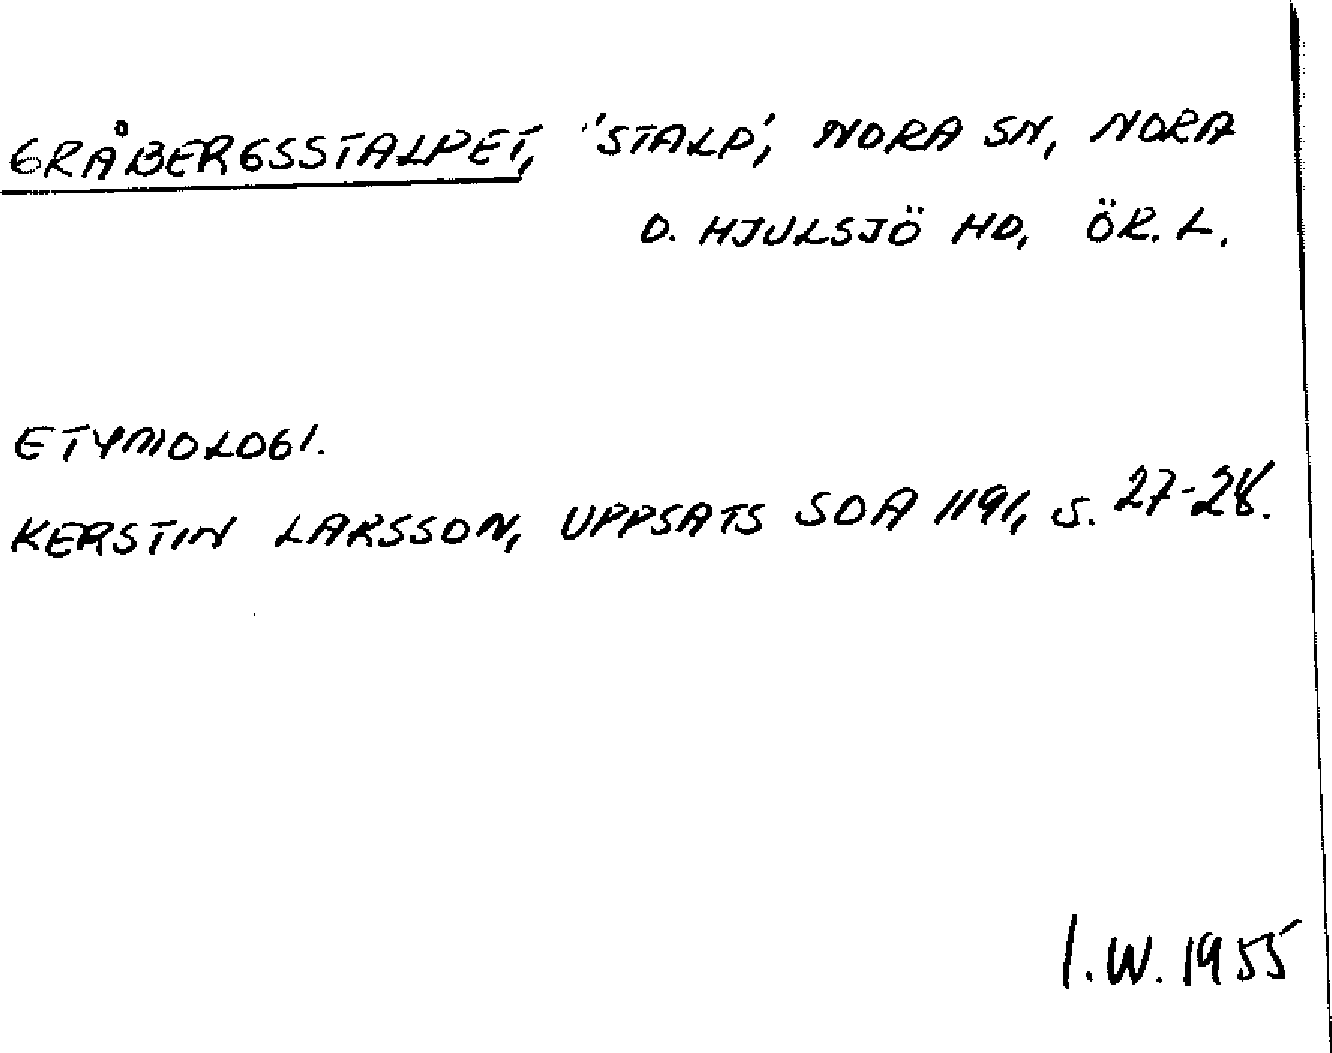 GRÅBERGSSTALPET, 'STALP', NORA SN, NORA
O. HJULSJÖ HD, ÖR. L.
ETYMOLOGI.
KERSTIN LARSSON, UPPSATS SOA 1191, S. 27-28.
I.W. 1955